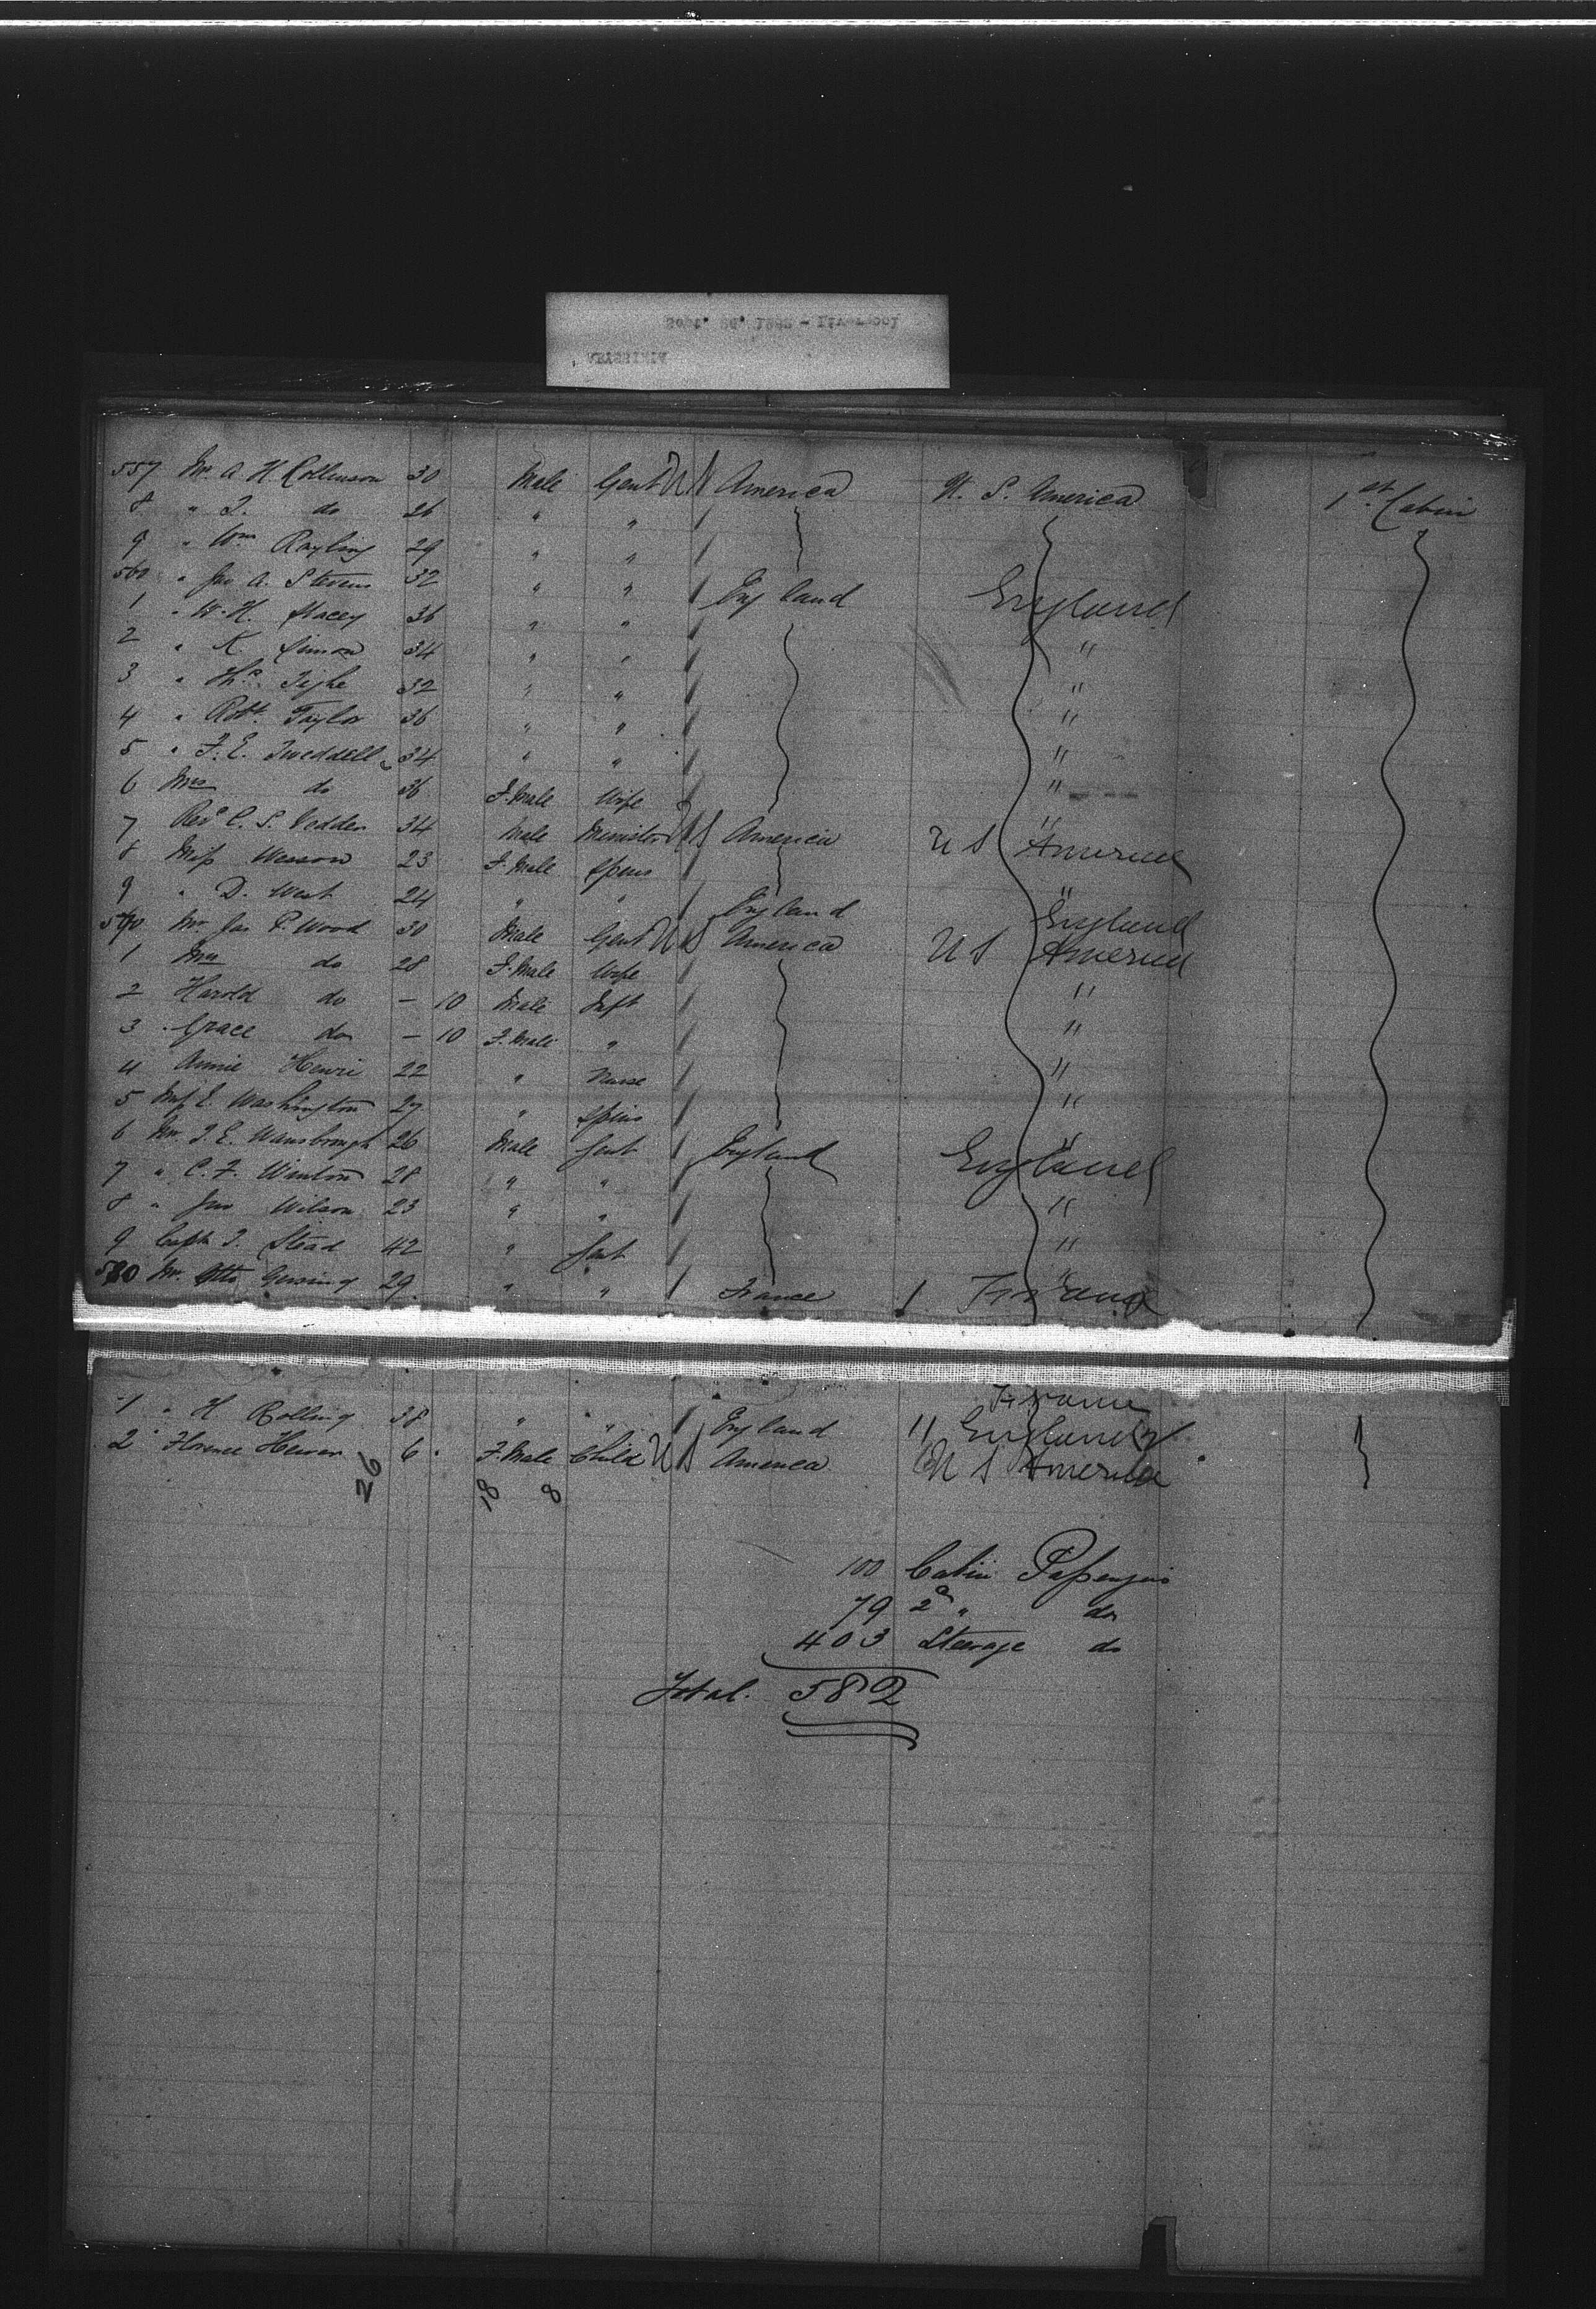 557 Mr. A. H Rollinson 30 Male Gent U S America U. S. America 1st. Cabin
8 " J. do 26 " "
9 " Wm Rayling 29 " "
560 " Jno A. Stevens 32 " " England England
1 " W. H. Stacey 36 " "
2 " K. Simon 34 " " "
3 " Thos. Tighe 32 " " "
4 " Robt. Taylor 36 " " "
5 " F. E. Tweddell 34 " " "
6 Mrs do 36 F. Male Wife "
7 Revd C. S. Vedder 34 Male Minister U S America U S America
8 Miss Wesson 23 F. Male Spins
9 " D. West 24 " " England England
570 Mr Jas P. Wood 30 Male Gent U S America U S America
1 Mrs do 28 F. Male Wife
2 Harold do – 10 Male Inft "
3 Grace do – 10 F. Male " "
4 Annie Henri 22 " Nurse "
5 Miss E. Washington 27 " Spins "
6 Mr. J. E. Wansbrough 26 Male Gent England England
7 " C. F. Winton 28 " "
8 " Jno Wilson 23 " " "
9 Capt J. Stead 42 " Gent "
580 Mr. Otto Gersing 29 " " France France
France
1 " H Rolling 38 " " England " England
2 Florence Hewer 6 F. Male Child U S America U S America
26 18 8
100 Cabin Passengers
79 2d " do
403 Steerage do
Total. 582